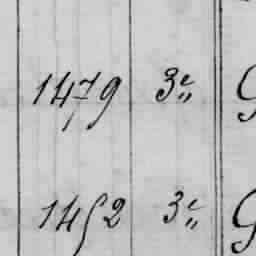 1479 3e G
1452 3e G